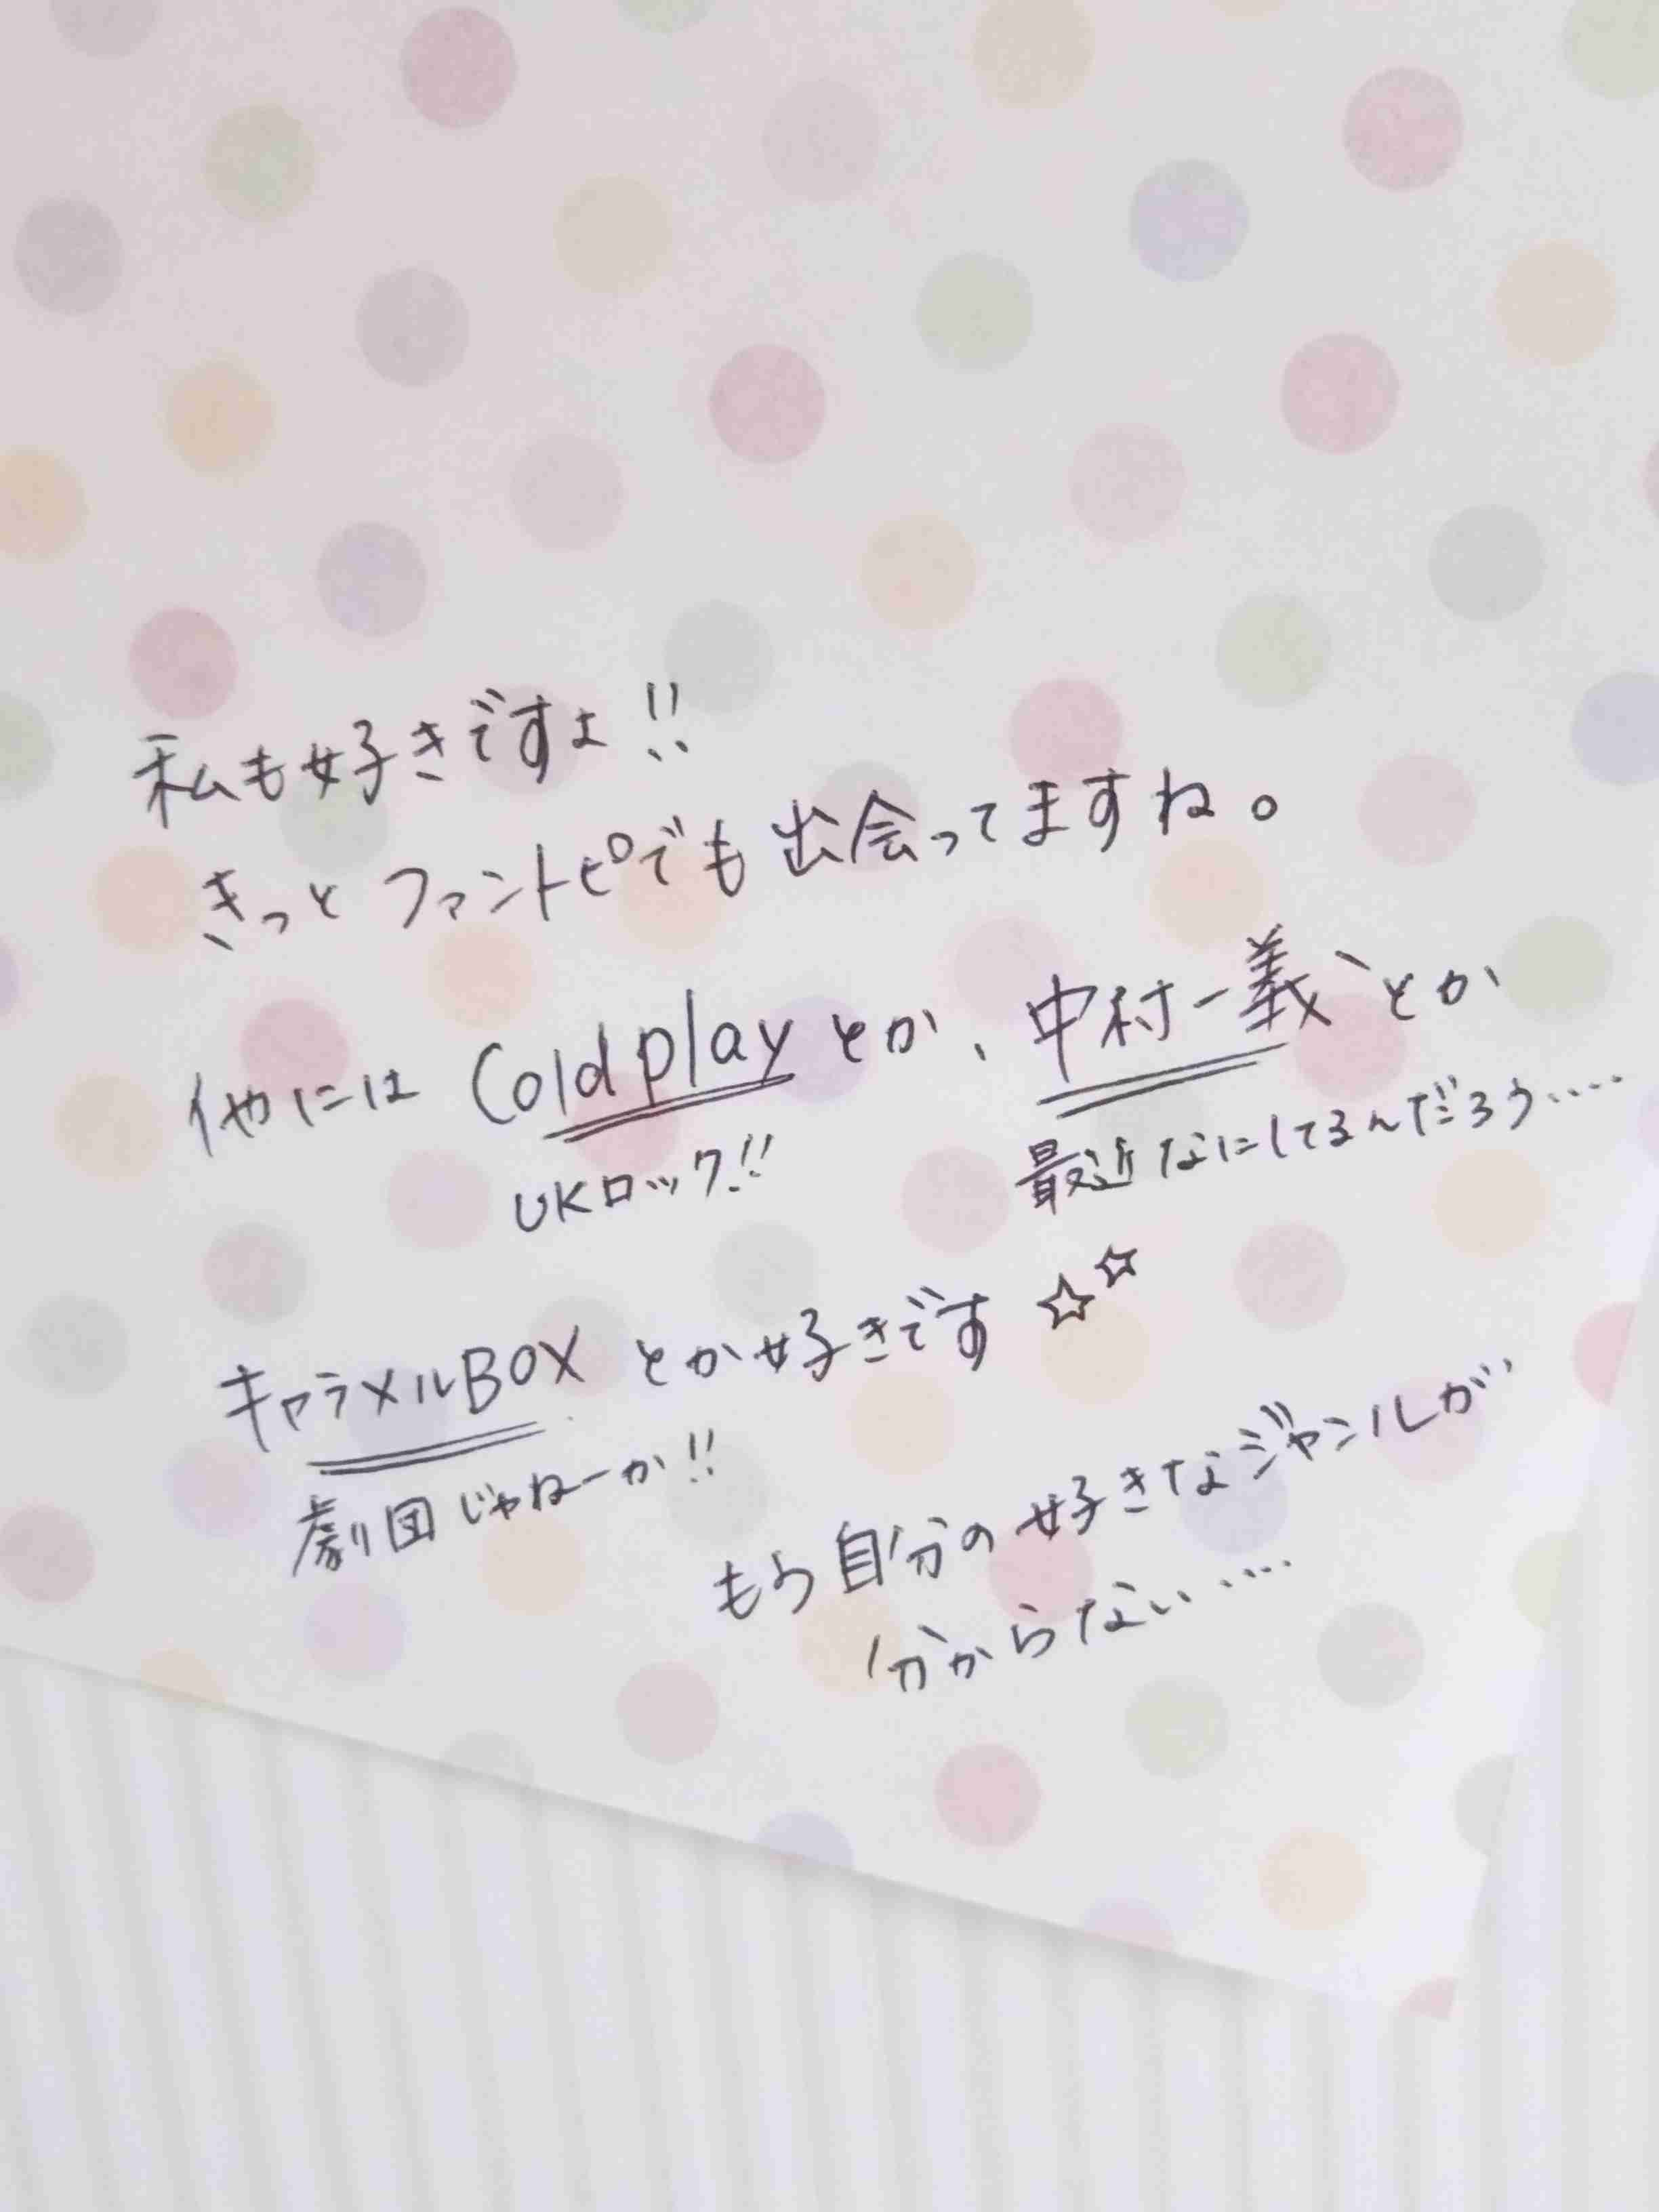 私も好きですよ!!
きっとファントピでも出会ってますね。
他には Coldplay とか、中村一義とか
UKロック!!
最近なにしてるんだろう……
キャラメルBOX とか好きです☆☆
劇団じゃねーか!!
もう自分の好きなジャンルが
分からない……